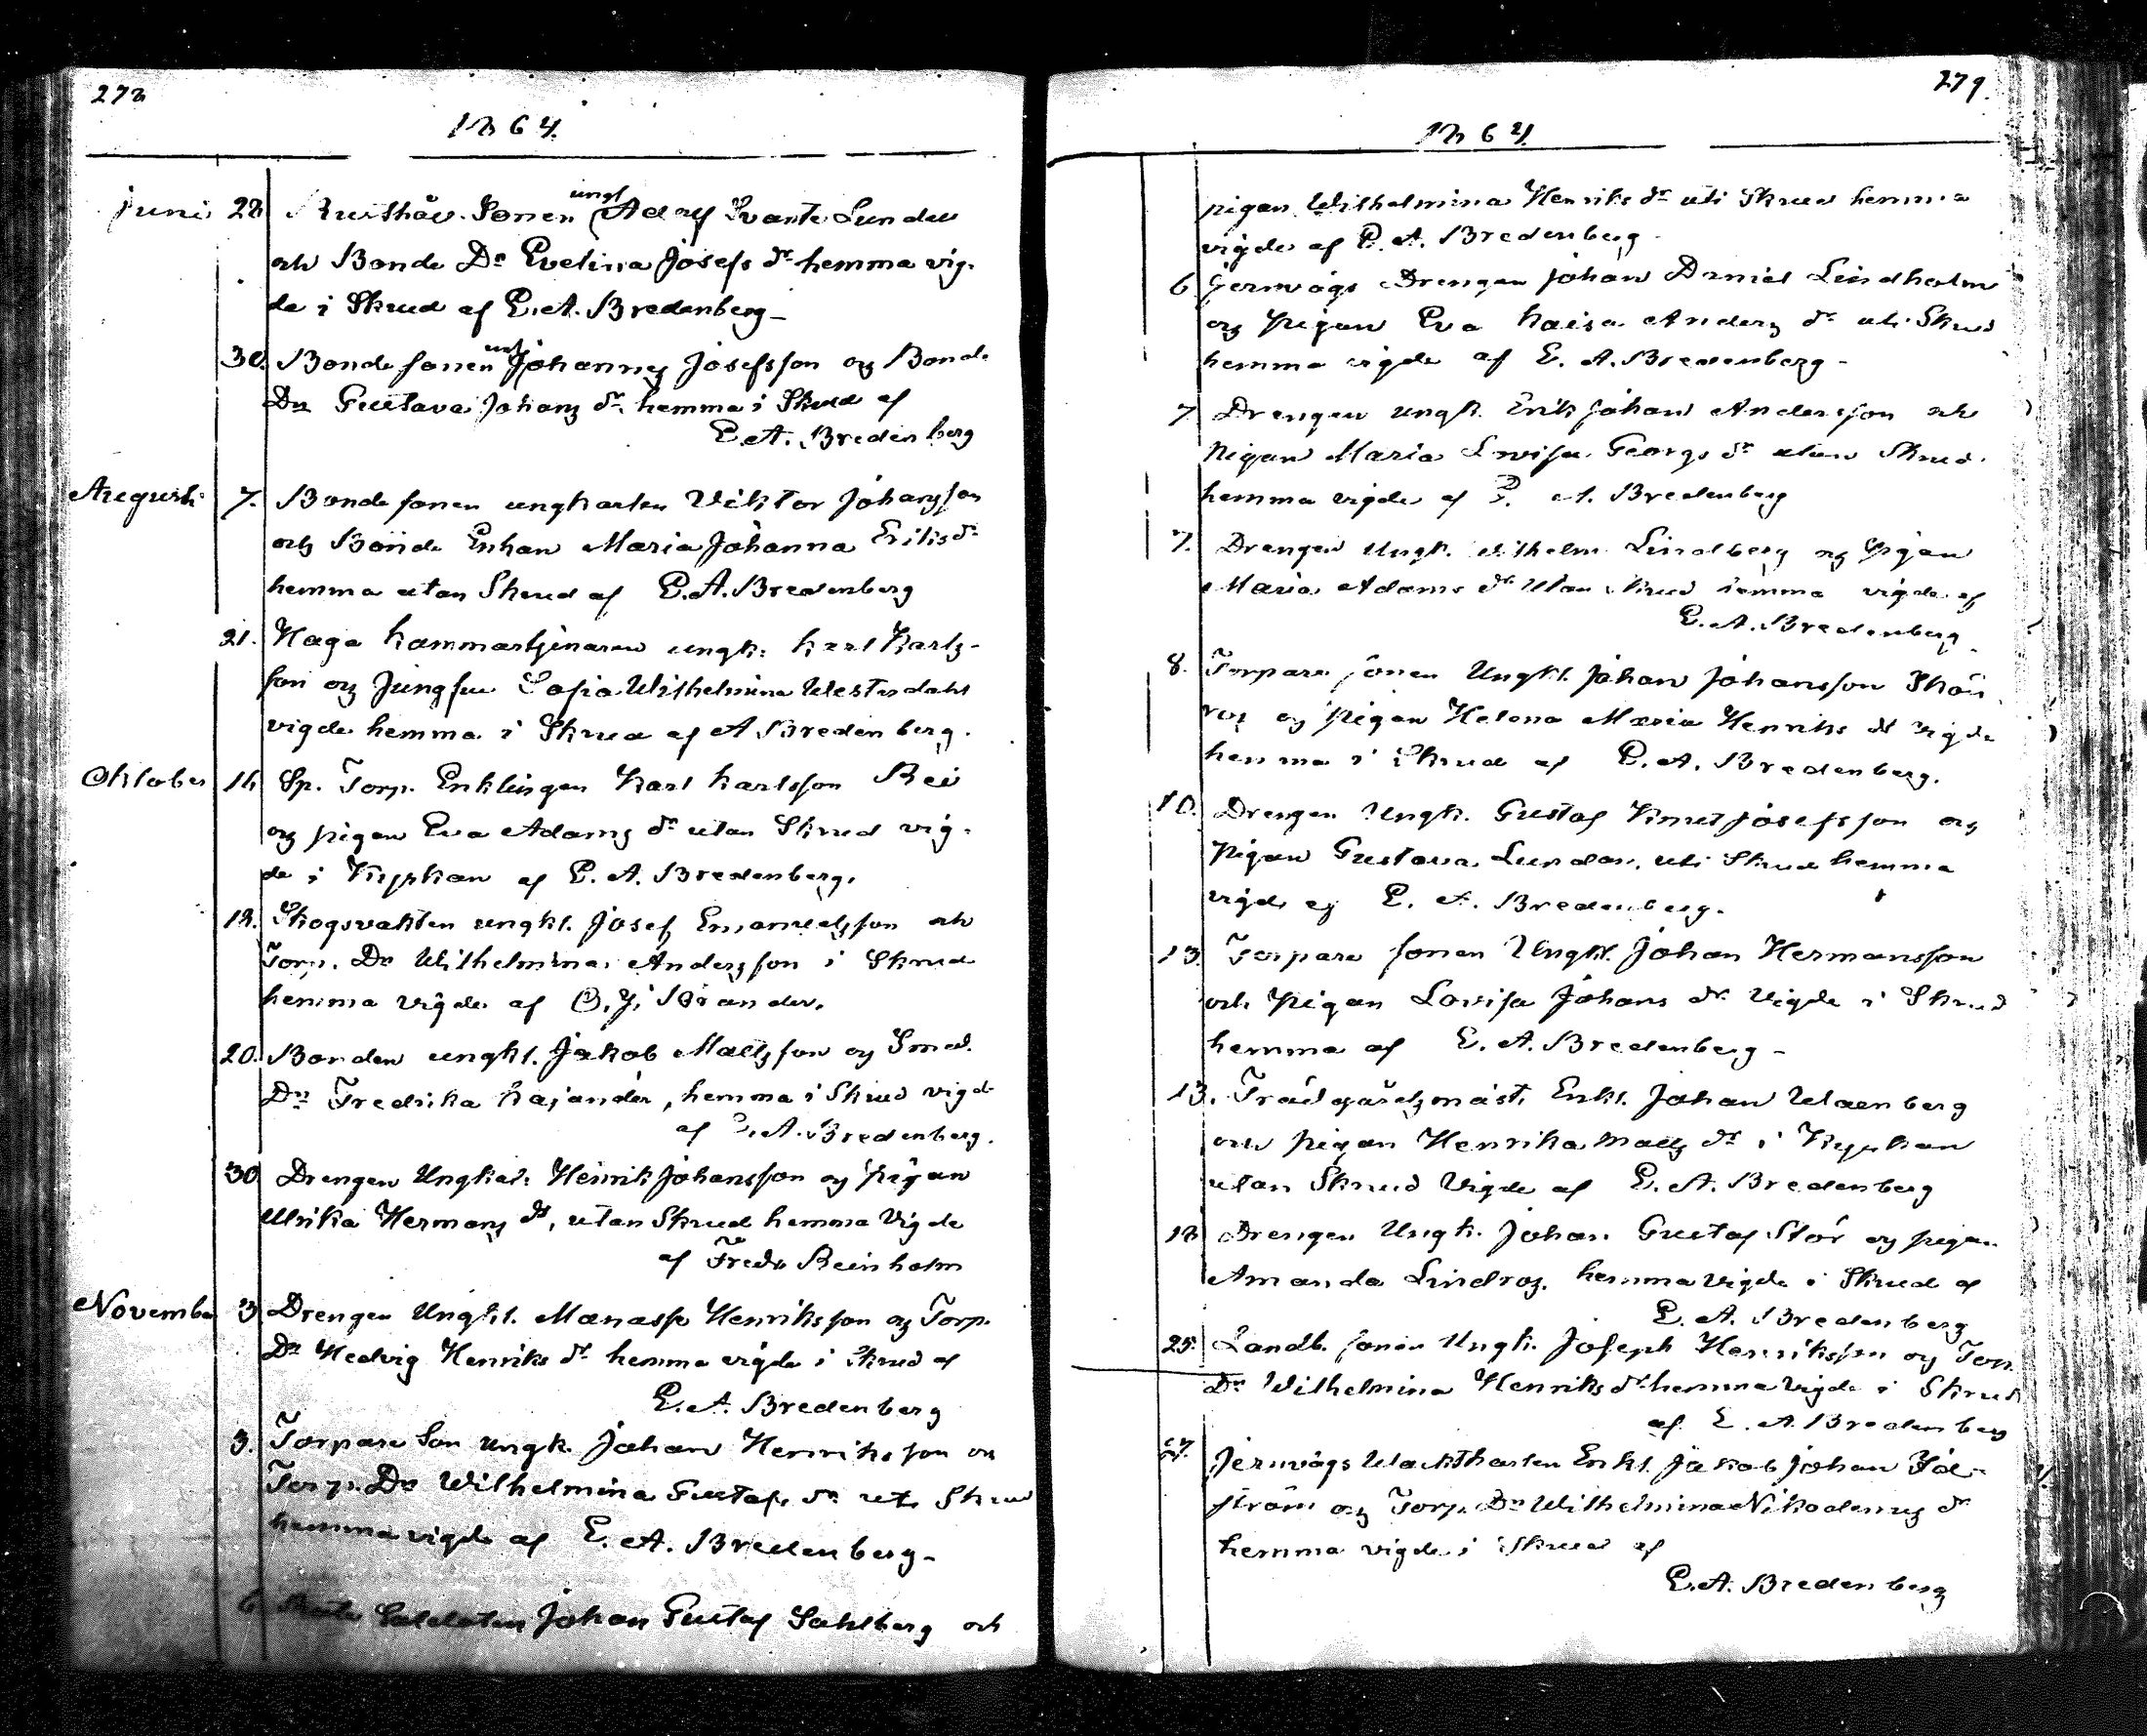 278
1864.
Juni 28 Rusthåll. Sonen ungk Adolf Svante Lundell
och Bonde Dr Evelina Josefs dr hemma vig-
de i Skrud af E. A. Bredenberg
30. Bonde sonen ungk Johannes Josefsson och Bonde
Dr Gustava Johans dr hemma i Skrud af
E. A. Bredenberg
Augusti 7. Bonde sonen ungkarlen Viktor Johansson
och Bonde Enkan Maria Johanna Eriks dr
hemma utan Skrud af E. A. Bredenberg
21. Haga Kammartjenaren ungk. Karl Karls-
son och Jungfru Sofia Wilhelmina Westerdahl
vigde hemma i Skrud af A Bredenberg.
Oktober 16 Sp. Torp. Enklingen Karl Karlsson Rei
och pigan Eva Adams dr utan Skrud vig-
de i Kyrkan af E. A. Bredenberg.
18. Skogsvakten ungkl. Josef Emanuelsson och
Torp. Dr Wilhelmina Andersson i Skrud
hemma vigde af O. J. Brander.
20. Bonden ungkl. Jakob Mattsson och Smed.
Dr Fredrika Kajander, hemma i Skrud vigd
af E. A. Bredenberg.
30 Drengen Ungkarl Henrik Johansson och pigan
Ulrika Hermans dr, utan Skrud hemma Vigde
af Fredr Reinholm
November 3 Drengen Ungkl. Manasse Henriksson och Torp.
Dr Hedvig Henriks dr hemma vigde i Skrud af
E. A. Bredenberg
3. Torpare Son ungk. Johan Henriksson och
Torp. Dr Wilhelmina Gustafs dr uti Skrud
hemma vigde af E. A. Bredenberg
6 Soldaten Johan Gustaf Sahlberg och
279.
1864.
pigan Wilhelmina Henriks dr uti Skrud hemma
vigde af E. A. Bredenberg
6 Jernvägs Drengen Johan Daniel Lindholm
och pigan Eva Kaisa Anders dr uti Skrud
hemma vigde af E. A. Bredenberg
7 Drengen ungk. Erik Johan Andersson och
Pigan Maria Lovisa Georgs dr utan Skrud
hemma vigde af E. A. Bredenberg
7. Drengen Ungk. Wilhelm Lindberg och Pigan
Maria Adams dr utan Skrud hemma vigde af
E. A. Bredenberg
8. Torpare sonen Ungkl. Johan Johansson
och pigan Helena Maria Henriks dr vigde
hemma i Skrud af E. A. Bredenberg.
10. Drengen Ungk. Gustaf Knut Josefsson och
Pigan Gustava Lundon, uti Skrud hemma
vigde af E. A. Bredenberg.
13. Torpare sonen Ungkl. Johan Hermansson
och Pigan Lovisa Johans dr Vigde i Skrud
hemma af E. A. Bredenberg
13. Trädgårdsmäst. Enkl. Johan Waenberg
och pigan Henrika Matts dr i Kyrkan
utan Skrud Vigde af E. A. Bredenberg
18 Drengen Ungk. Johan Gustaf Stör och pigan
Amanda Lindros hemma vigde i Skrud af
E. A. Bredenberg
25. Landb. sonen Ungk. Joseph Henriksson och Torp.
Dr Wilhelmina Henriks dr hemma vigde i Skrud
af E. A. Bredenberg
27. Jernvägs Wacktkarlen Enkl. Jakob Johan
ström och Torp. Dr Wilhelmina Nikodemus dr
hemma vigde i Skrud af
E. A. Bredenberg